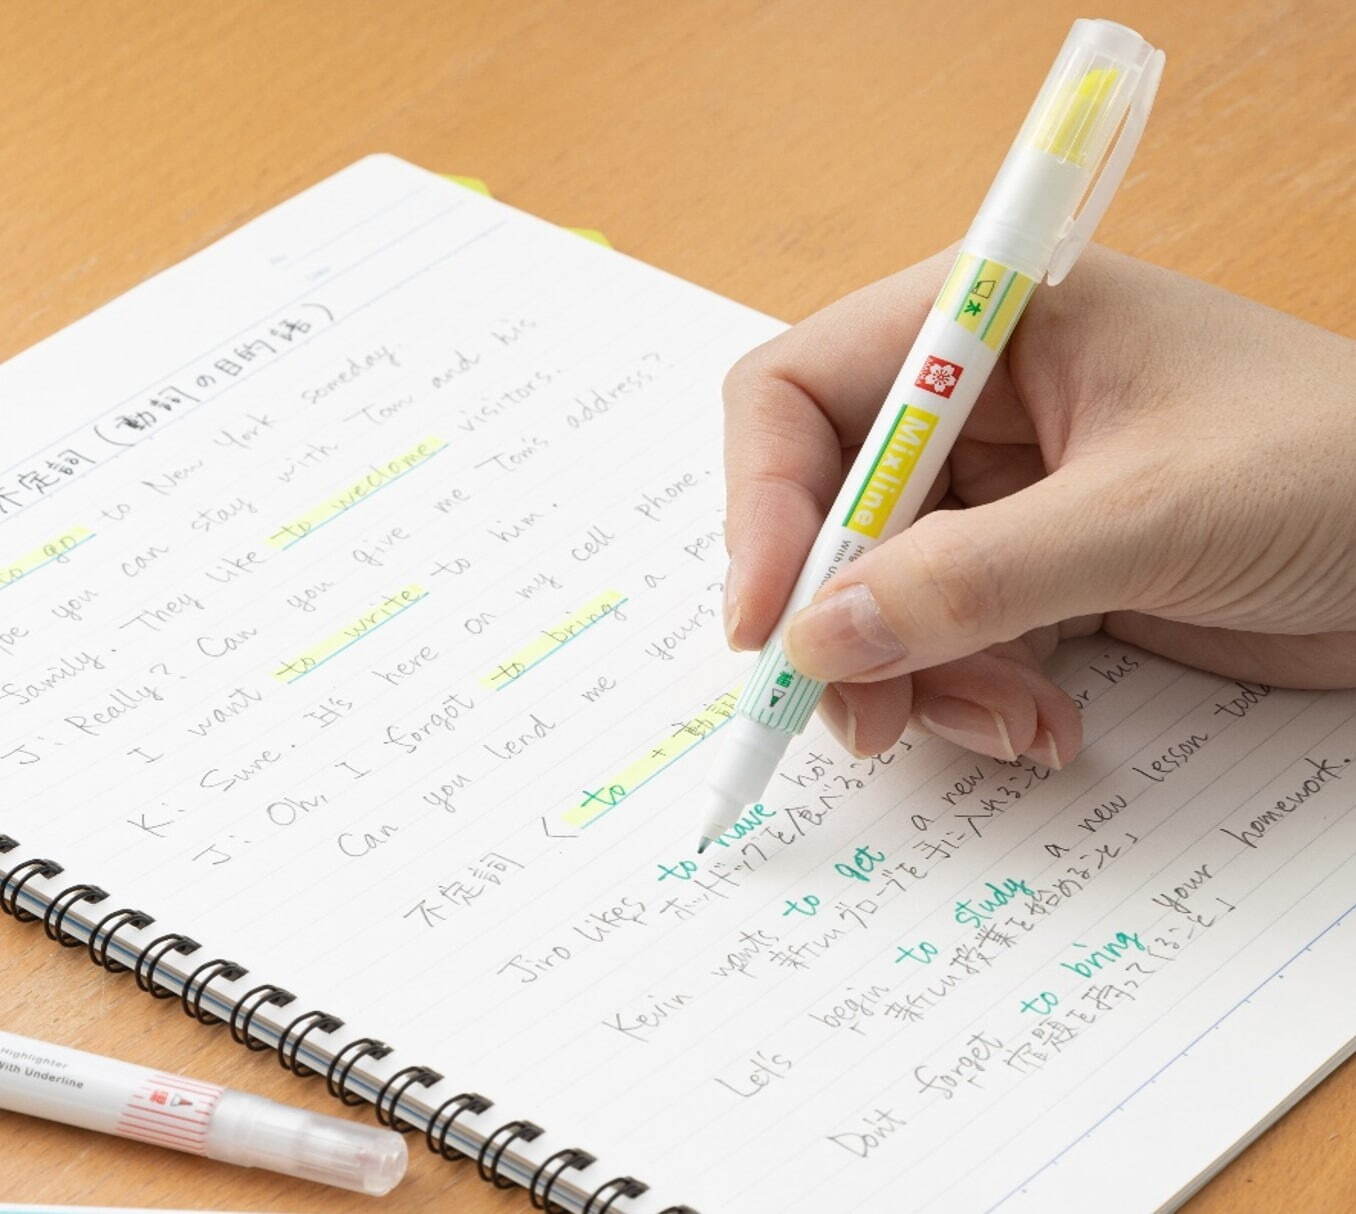 不定詞 (動詞の目的語)
to go to New York someday.
pe you can stay with Tom and his
family. They like to weclome visitors.
J: Really? Can you give me Tom's address?
I want to write to him.
K: Sure. It's here on my cell phone.
J: Oh, I forgot to bring a pen
Can you lend me yours?
不定詞 〈 to + 動詞
Jiro likes to have hot
ホットドッグを食べること」
Kevin wants to get a new for his
新しいグローブを手に入れること」
Let's begin to study a new lesson today
「新しい授業を始めること」
Don't forget to bring your homework.
「宿題を持ってくること」
太
Mixline
細
Highlighter
With Underline